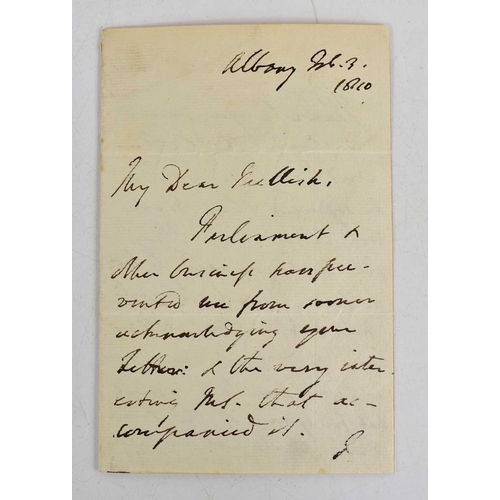 Albany Feb. 3.
1810
My Dear Mellish,
Parliament &
other business have pre-
vented me from sooner
acknowledging your
Letter: & the very inter-
esting MS. that ac-
companied it.
I